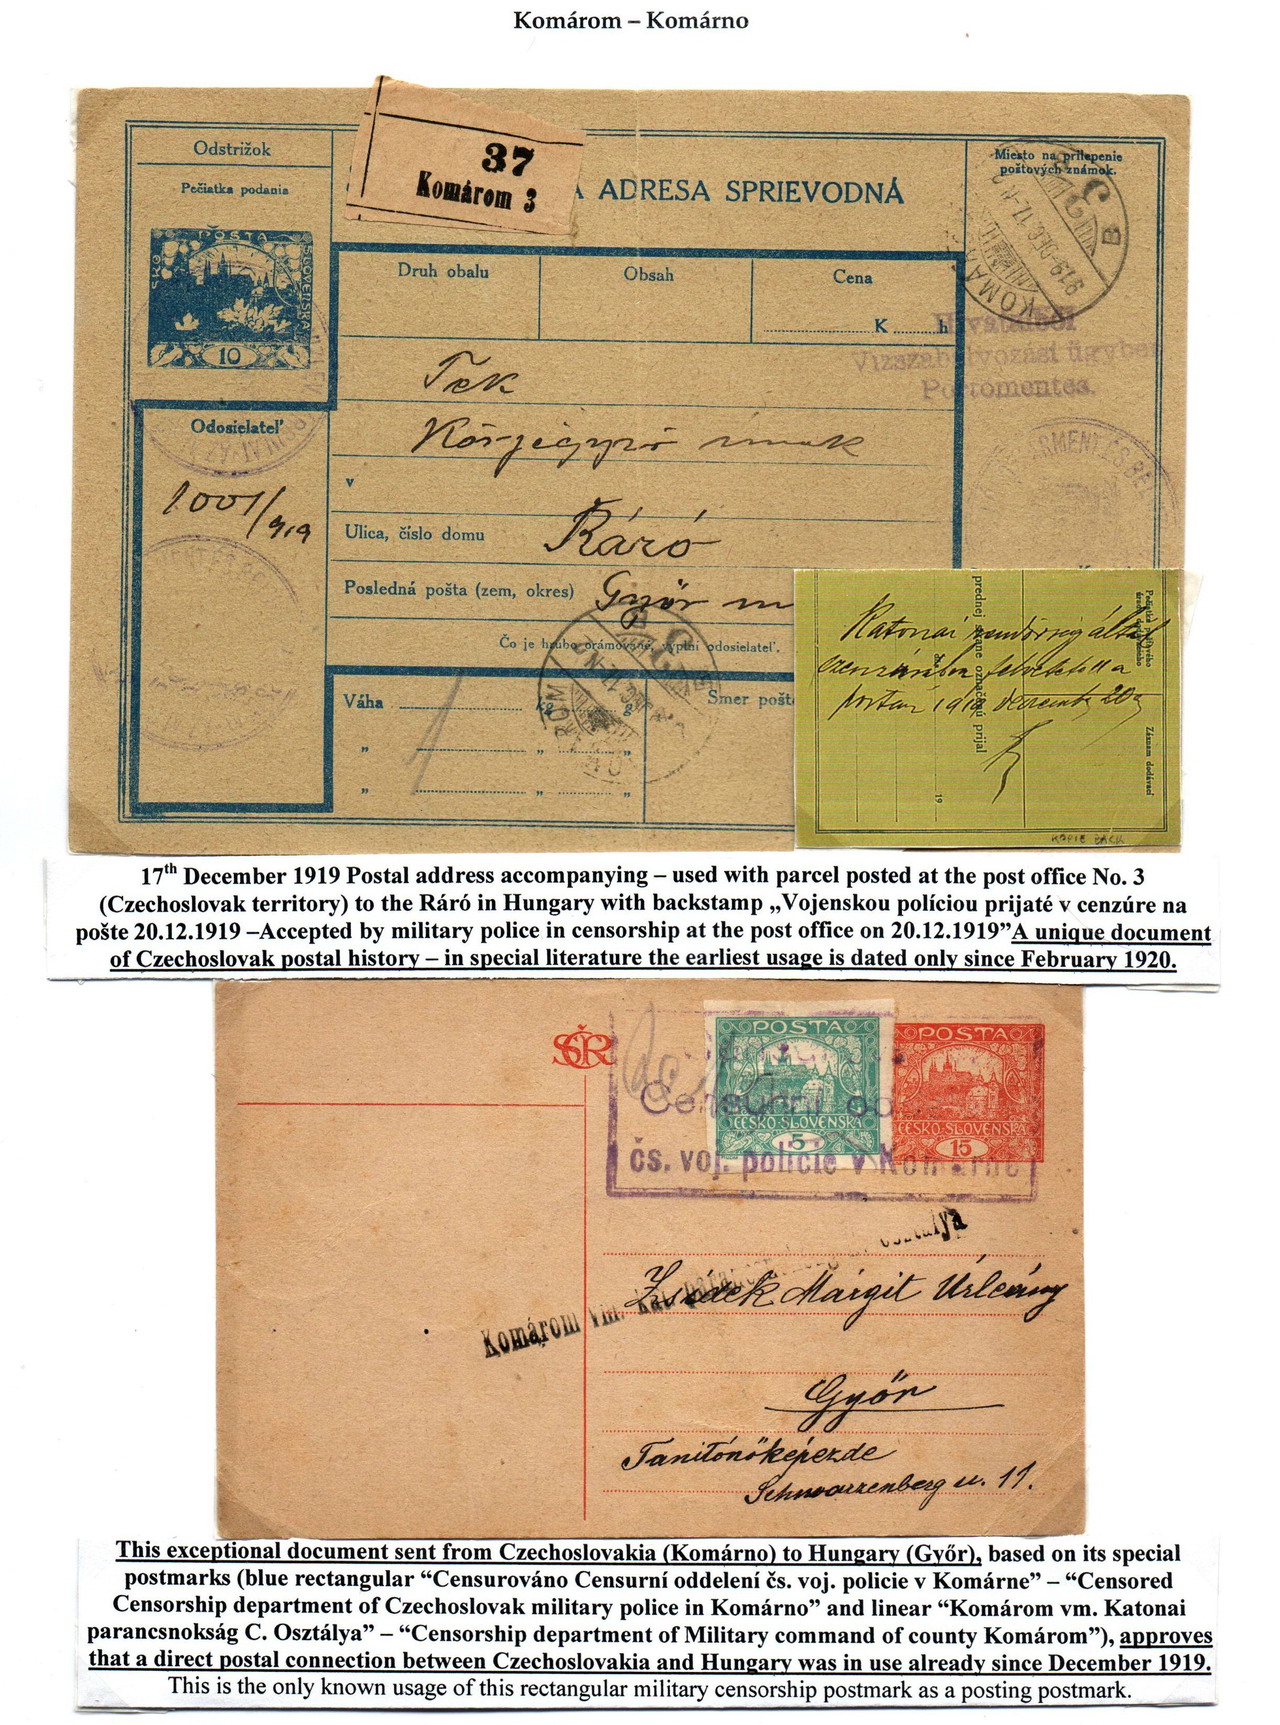 Komárom – Komárno
Odstrižok
Pečiatka podania
POSTA
SLOVENSKÁ
10
37
Komárom 3
A ADRESA SPRIEVODNÁ
Miesto na prilepenie
poštových známok.
KOMÁ
919 DEC 17
B
Druh obalu
Obsah
Cena
K h
Hivatalból
Vizszabályozási ügyben
Portomentes.
Tek
Odosielateľ
1001/919
v
Ulica, číslo domu
Ráró
Posledná pošta (zem, okres)
Győr m
Čo je hrubo orámované, vyplní odosielateľ.
Váha
kg
g
Smer pošt
„ „ „
„ „ „
Katonai rendőrség által
cenzúrára felvétetett a
postán 1919 december 20
prednej strane označenú prijal
Záznam dodávací
19
KOPIE BACK
17th December 1919 Postal address accompanying – used with parcel posted at the post office No. 3
(Czechoslovak territory) to the Ráró in Hungary with backstamp „Vojenskou políciou prijaté v cenzúre na
pošte 20.12.1919 –Accepted by military police in censorship at the post office on 20.12.1919”A unique document
of Czechoslovak postal history – in special literature the earliest usage is dated only since February 1920.
ČSR
POSTA
ČESKO-SLOVENSKÁ
5
POSTA
ČESKO-SLOVENSKÁ
15
Censurní od
čs. voj. policie v Komárně
Komárom vm. kat. parancsnokság osztálya
Margit Úrleány
Győr
Tanítónőképezde
Schwarzenberg u. 11.
This exceptional document sent from Czechoslovakia (Komárno) to Hungary (Győr), based on its special
postmarks (blue rectangular “Censurováno Censurní oddelení čs. voj. policie v Komárne” – “Censored
Censorship department of Czechoslovak military police in Komárno” and linear “Komárom vm. Katonai
parancsnokság C. Osztálya” – “Censorship department of Military command of county Komárom”), approves
that a direct postal connection between Czechoslovakia and Hungary was in use already since December 1919.
This is the only known usage of this rectangular military censorship postmark as a posting postmark.